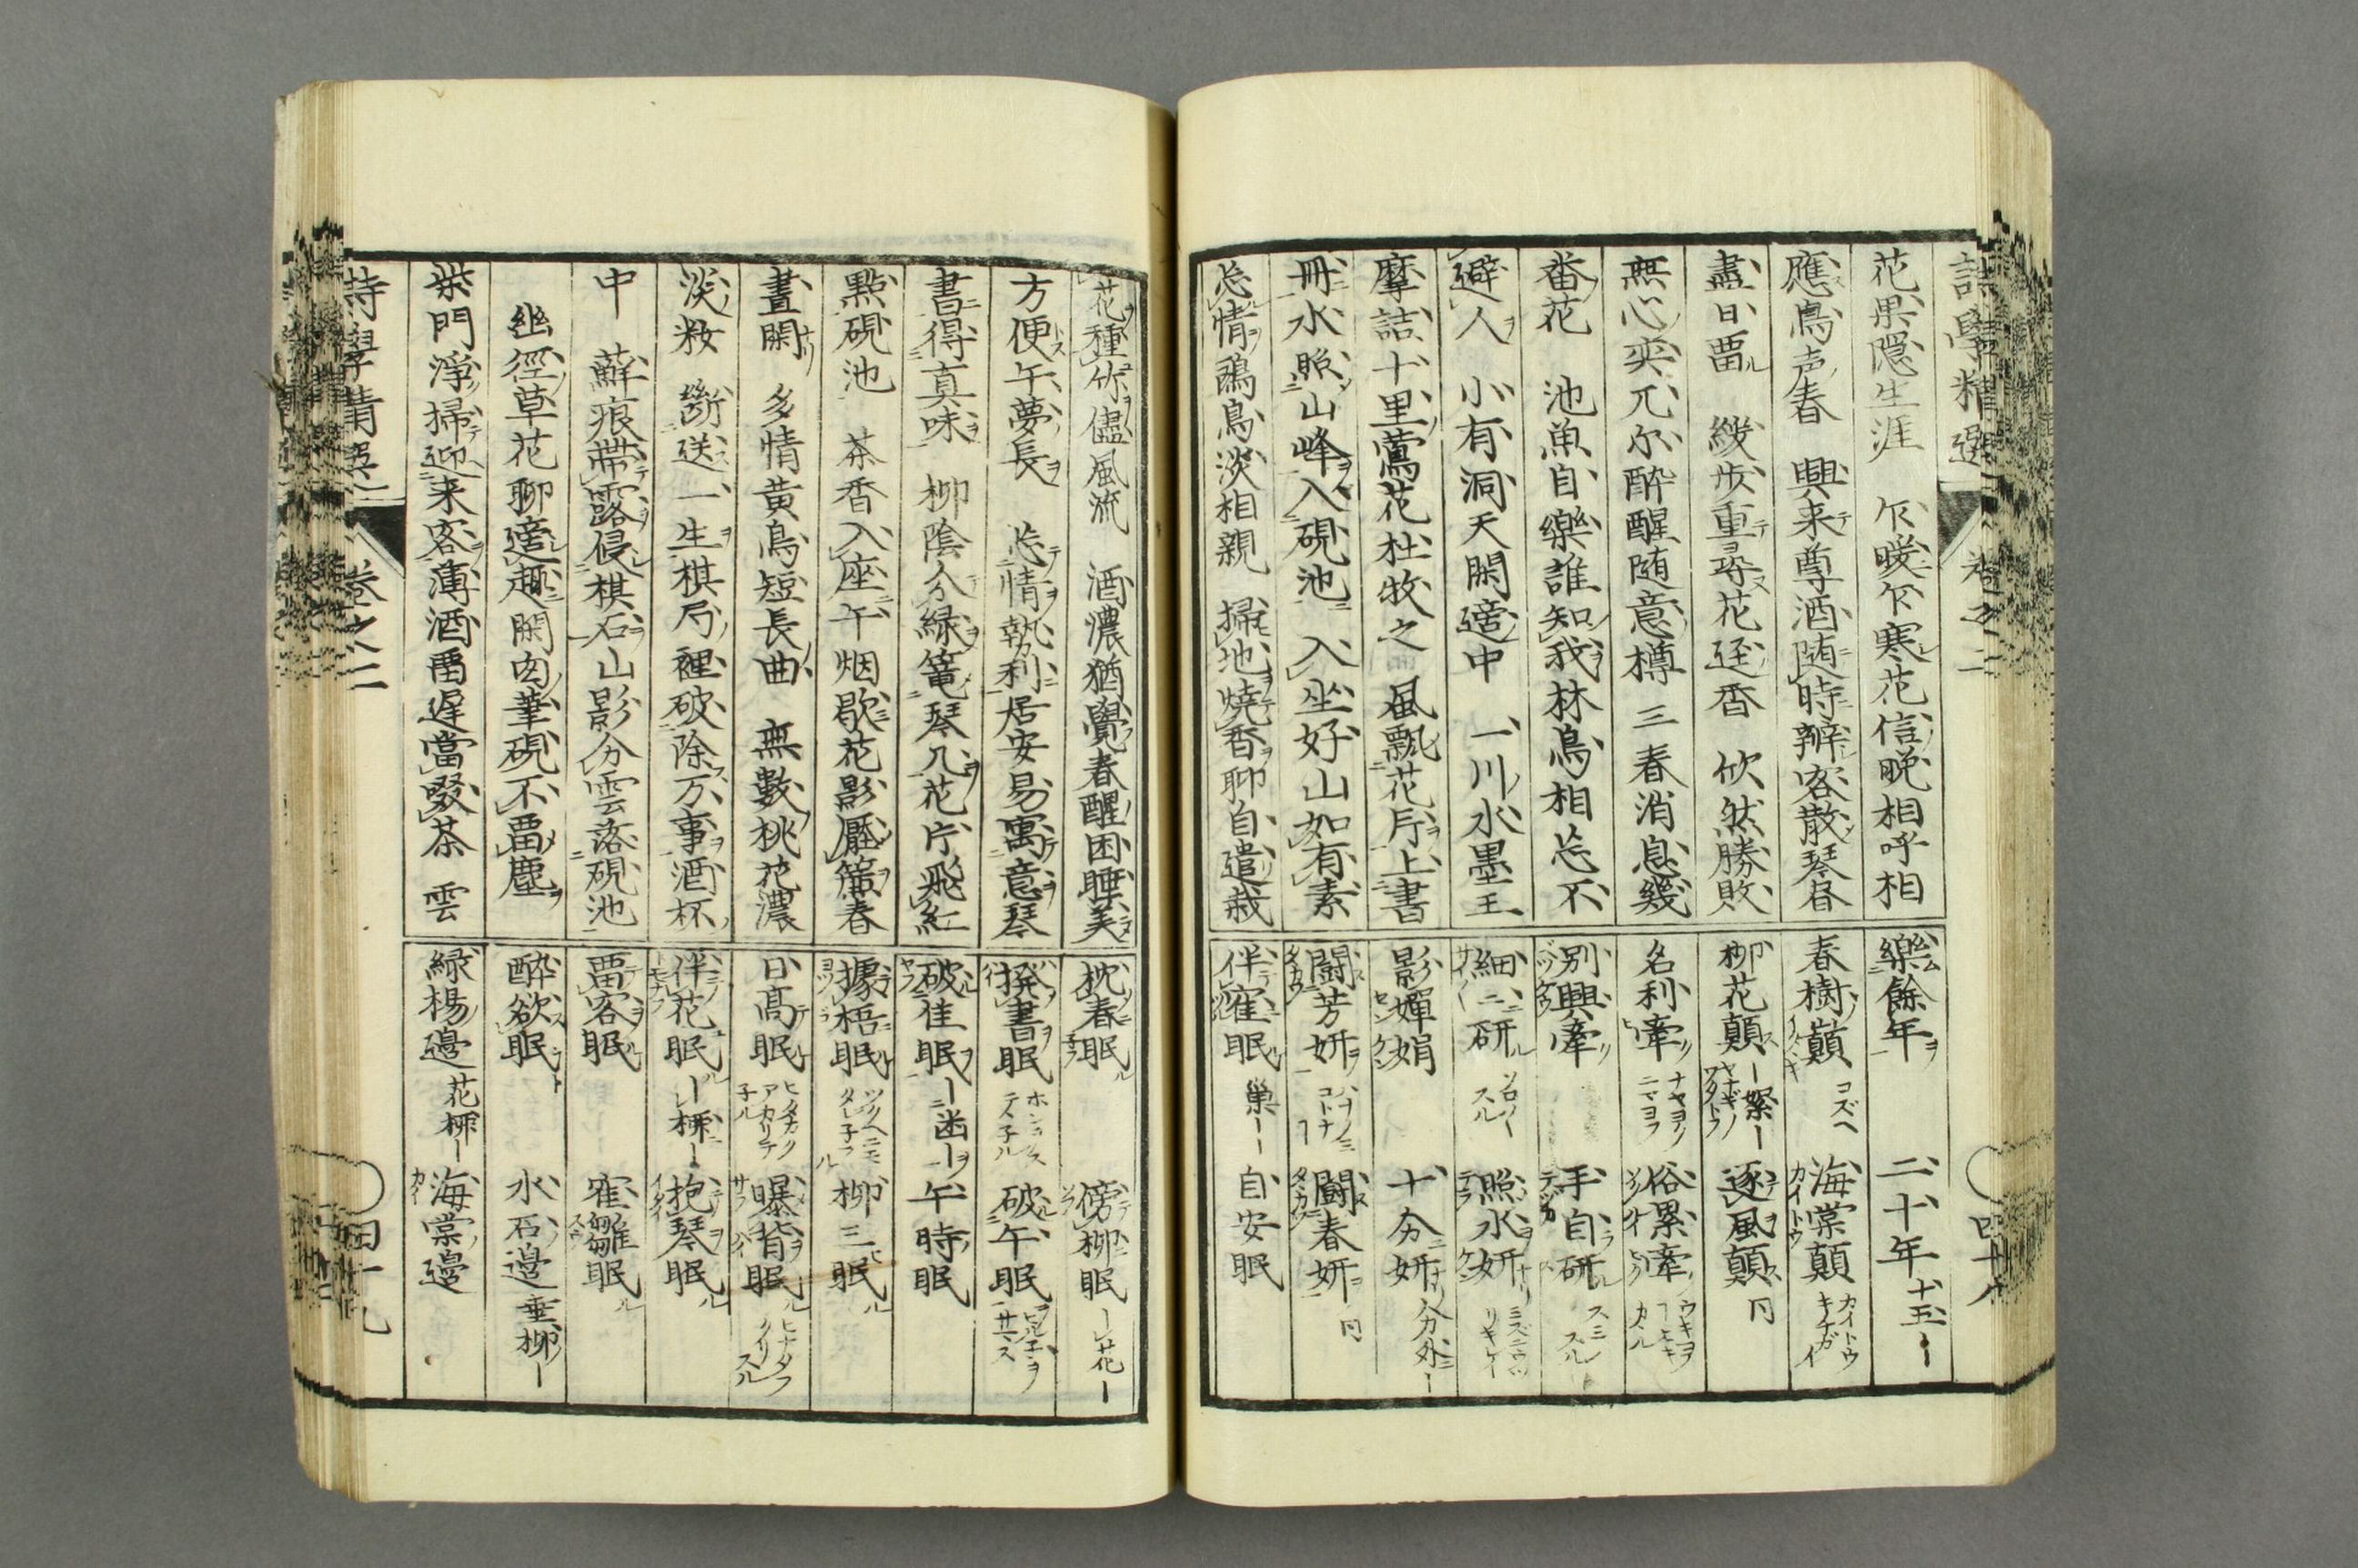 詩學精選 卷之二 四十八
花果隠生涯 乍暖乍寒花信晩相呼相
應鳥声春 興来尊酒随時辨客散琴昏
盡日畱 緩步重尋花逕香 欣然勝敗
無心奕兀尔酔醒随意樽 三春消息幾
番花 池魚自樂誰知我林鳥相忘不
避人 小有洞天閑適中 一川水墨王
摩詰十里鶯花杜牧之 風飄花片上書
冊水照山峰入硯池 入坐好山如有素
忘情鷗鳥淡相親 掃地燒香聊自遣栽
樂餘年 二十年 十五ー
春樹巔 コズヘ 海棠顛 カイトウ
柳花顛 ー絮ー 逐風顛 同
名利牽 俗累牽
別興牽 手自研
細ニ研 照水妍
影嬋娟 十分妍 分外ー
鬪芳妍 鬪春妍 同
伴窗眠 巣ーー 自安眠
花種竹儘風流 酒濃猶覺春醒困睡美
方便午夢長 忘情勢利居安易寓意琴
書得真味 柳陰分緑篭琴几花片飛紅
點硯池 茶香入座午烟歇花影壓簾春
晝閑 多情黄鳥短長曲 無數桃花濃
淡粧 斷送一生棋局裡破除万事酒杯
中 蘚痕帶露侵棋石山影分雲落硯池
幽徑草花聊適趣閑窗筆硯不畱塵
柴門淨掃迎来客薄酒畱遅當啜茶 雲
枕春眠 傍柳眠 ー花ー
撥書眠 破午眠
破佳眠 午時眠
據梧眠 柳三眠
日高眠 曝背眠
伴花眠 ー柳ー 抱琴眠
畱客眠 窗雛眠
酔欲眠 水石邉 垂柳ー
緑楊邉 花柳ー 海棠邉
詩學精選 卷之二 四十九